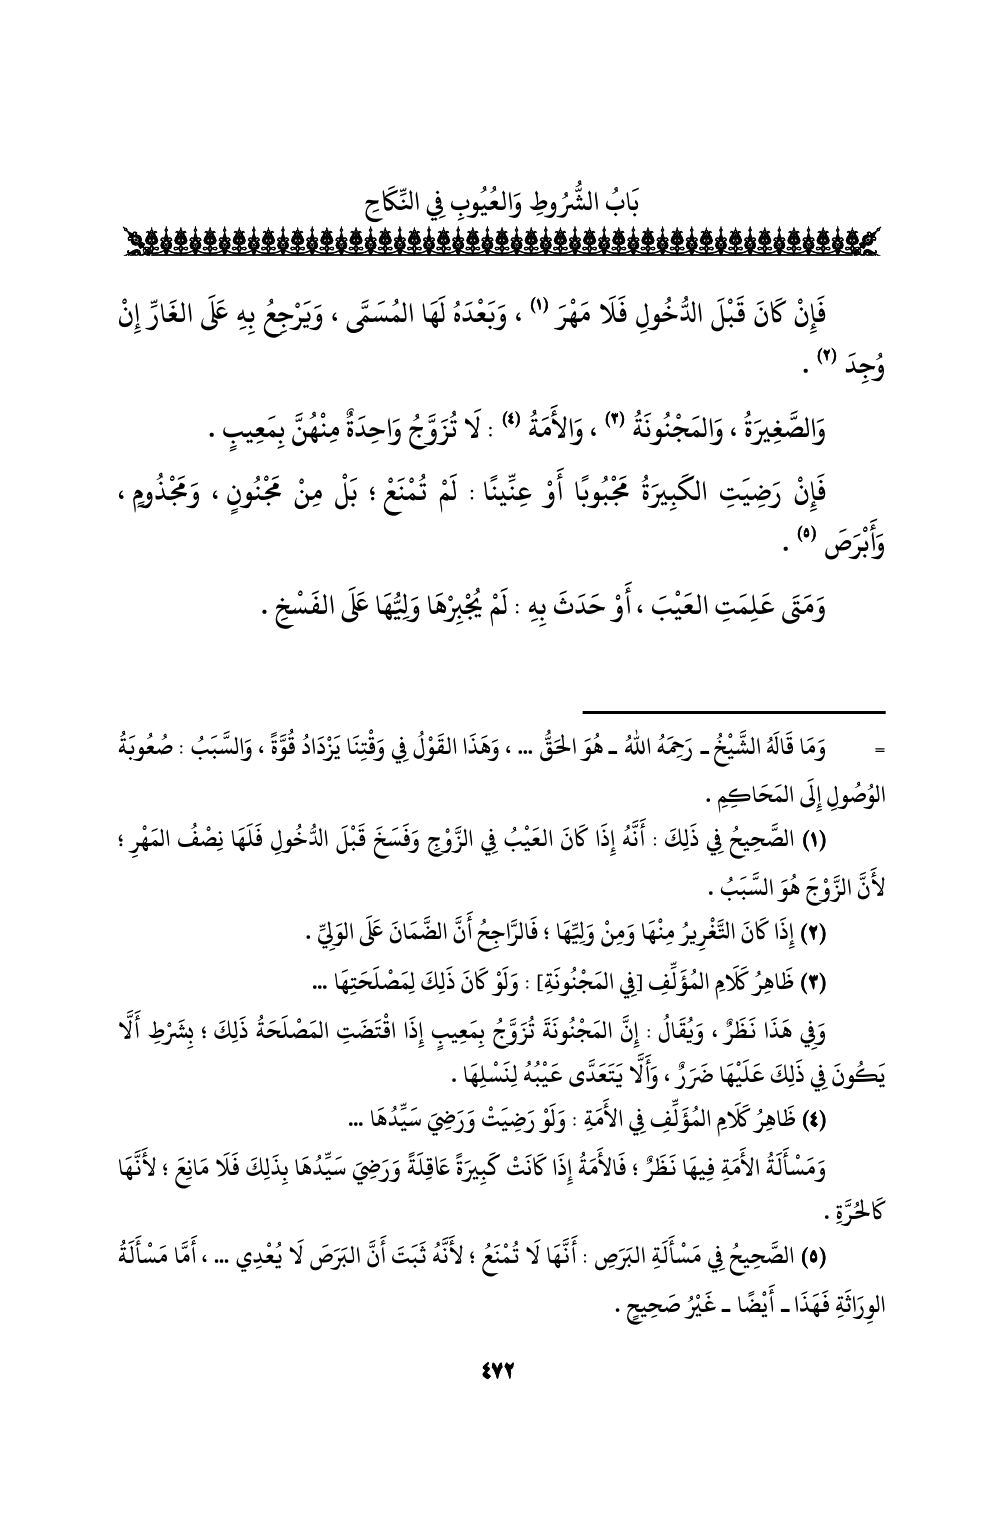 بَابُ الشُّرُوطِ وَالعُيُوبِ فِي النِّكَاحِ
فَإِنْ كَانَ قَبْلَ الدُّخُولِ فَلَا مَهْرَ (١) ، وَبَعْدَهُ لَهَا المُسَمَّى ، وَيَرْجِعُ بِهِ عَلَى الغَارِّ إِنْ
وُجِدَ (٢) .
وَالصَّغِيرَةُ ، وَالمَجْنُونَةُ (٣) ، وَالأَمَةُ (٤) : لَا تُزَوَّجُ وَاحِدَةٌ مِنْهُنَّ بِمَعِيبٍ .
فَإِنْ رَضِيَتِ الكَبِيرَةُ مَجْبُوبًا أَوْ عِنِّينًا : لَمْ تُمْنَعْ ؛ بَلْ مِنْ مَجْنُونٍ ، وَمَجْذُومٍ ،
وَأَبْرَصَ (٥) .
وَمَتَى عَلِمَتِ العَيْبَ ، أَوْ حَدَثَ بِهِ : لَمْ يُجْبِرْهَا وَلِيُّهَا عَلَى الفَسْخِ .
= وَمَا قَالَهُ الشَّيْخُ ـ رَحِمَهُ اللهُ ـ هُوَ الحَقُّ ... ، وَهَذَا القَوْلُ فِي وَقْتِنَا يَزْدَادُ قُوَّةً ، وَالسَّبَبُ : صُعُوبَةُ
الوُصُولِ إِلَى المَحَاكِمِ .
(١) الصَّحِيحُ فِي ذَلِكَ : أَنَّهُ إِذَا كَانَ العَيْبُ فِي الزَّوْجِ وَفَسَخَ قَبْلَ الدُّخُولِ فَلَهَا نِصْفُ المَهْرِ ؛
لأَنَّ الزَّوْجَ هُوَ السَّبَبُ .
(٢) إِذَا كَانَ التَّغْرِيرُ مِنْهَا وَمِنْ وَلِيِّهَا ؛ فَالرَّاجِحُ أَنَّ الضَّمَانَ عَلَى الوَلِيِّ .
(٣) ظَاهِرُ كَلَامِ المُؤَلِّفِ [فِي المَجْنُونَةِ] : وَلَوْ كَانَ ذَلِكَ لِمَصْلَحَتِهَا ...
وَفِي هَذَا نَظَرٌ ، وَيُقَالُ : إِنَّ المَجْنُونَةَ تُزَوَّجُ بِمَعِيبٍ إِذَا اقْتَضَتِ المَصْلَحَةُ ذَلِكَ ؛ بِشَرْطِ أَلَّا
يَكُونَ فِي ذَلِكَ عَلَيْهَا ضَرَرٌ ، وَأَلَّا يَتَعَدَّى عَيْبُهُ لِنَسْلِهَا .
(٤) ظَاهِرُ كَلَامِ المُؤَلِّفِ فِي الأَمَةِ : وَلَوْ رَضِيَتْ وَرَضِيَ سَيِّدُهَا ...
وَمَسْأَلَةُ الأَمَةِ فِيهَا نَظَرٌ ؛ فَالأَمَةُ إِذَا كَانَتْ كَبِيرَةً عَاقِلَةً وَرَضِيَ سَيِّدُهَا بِذَلِكَ فَلَا مَانِعَ ؛ لأَنَّهَا
كَالحُرَّةِ .
(٥) الصَّحِيحُ فِي مَسْأَلَةِ البَرَصِ : أَنَّهَا لَا تُمْنَعُ ؛ لأَنَّهُ ثَبَتَ أَنَّ البَرَصَ لَا يُعْدِي ... ، أَمَّا مَسْأَلَةُ
الوِرَاثَةِ فَهَذَا ـ أَيْضًا ـ غَيْرُ صَحِيحٍ .
٤٧٢